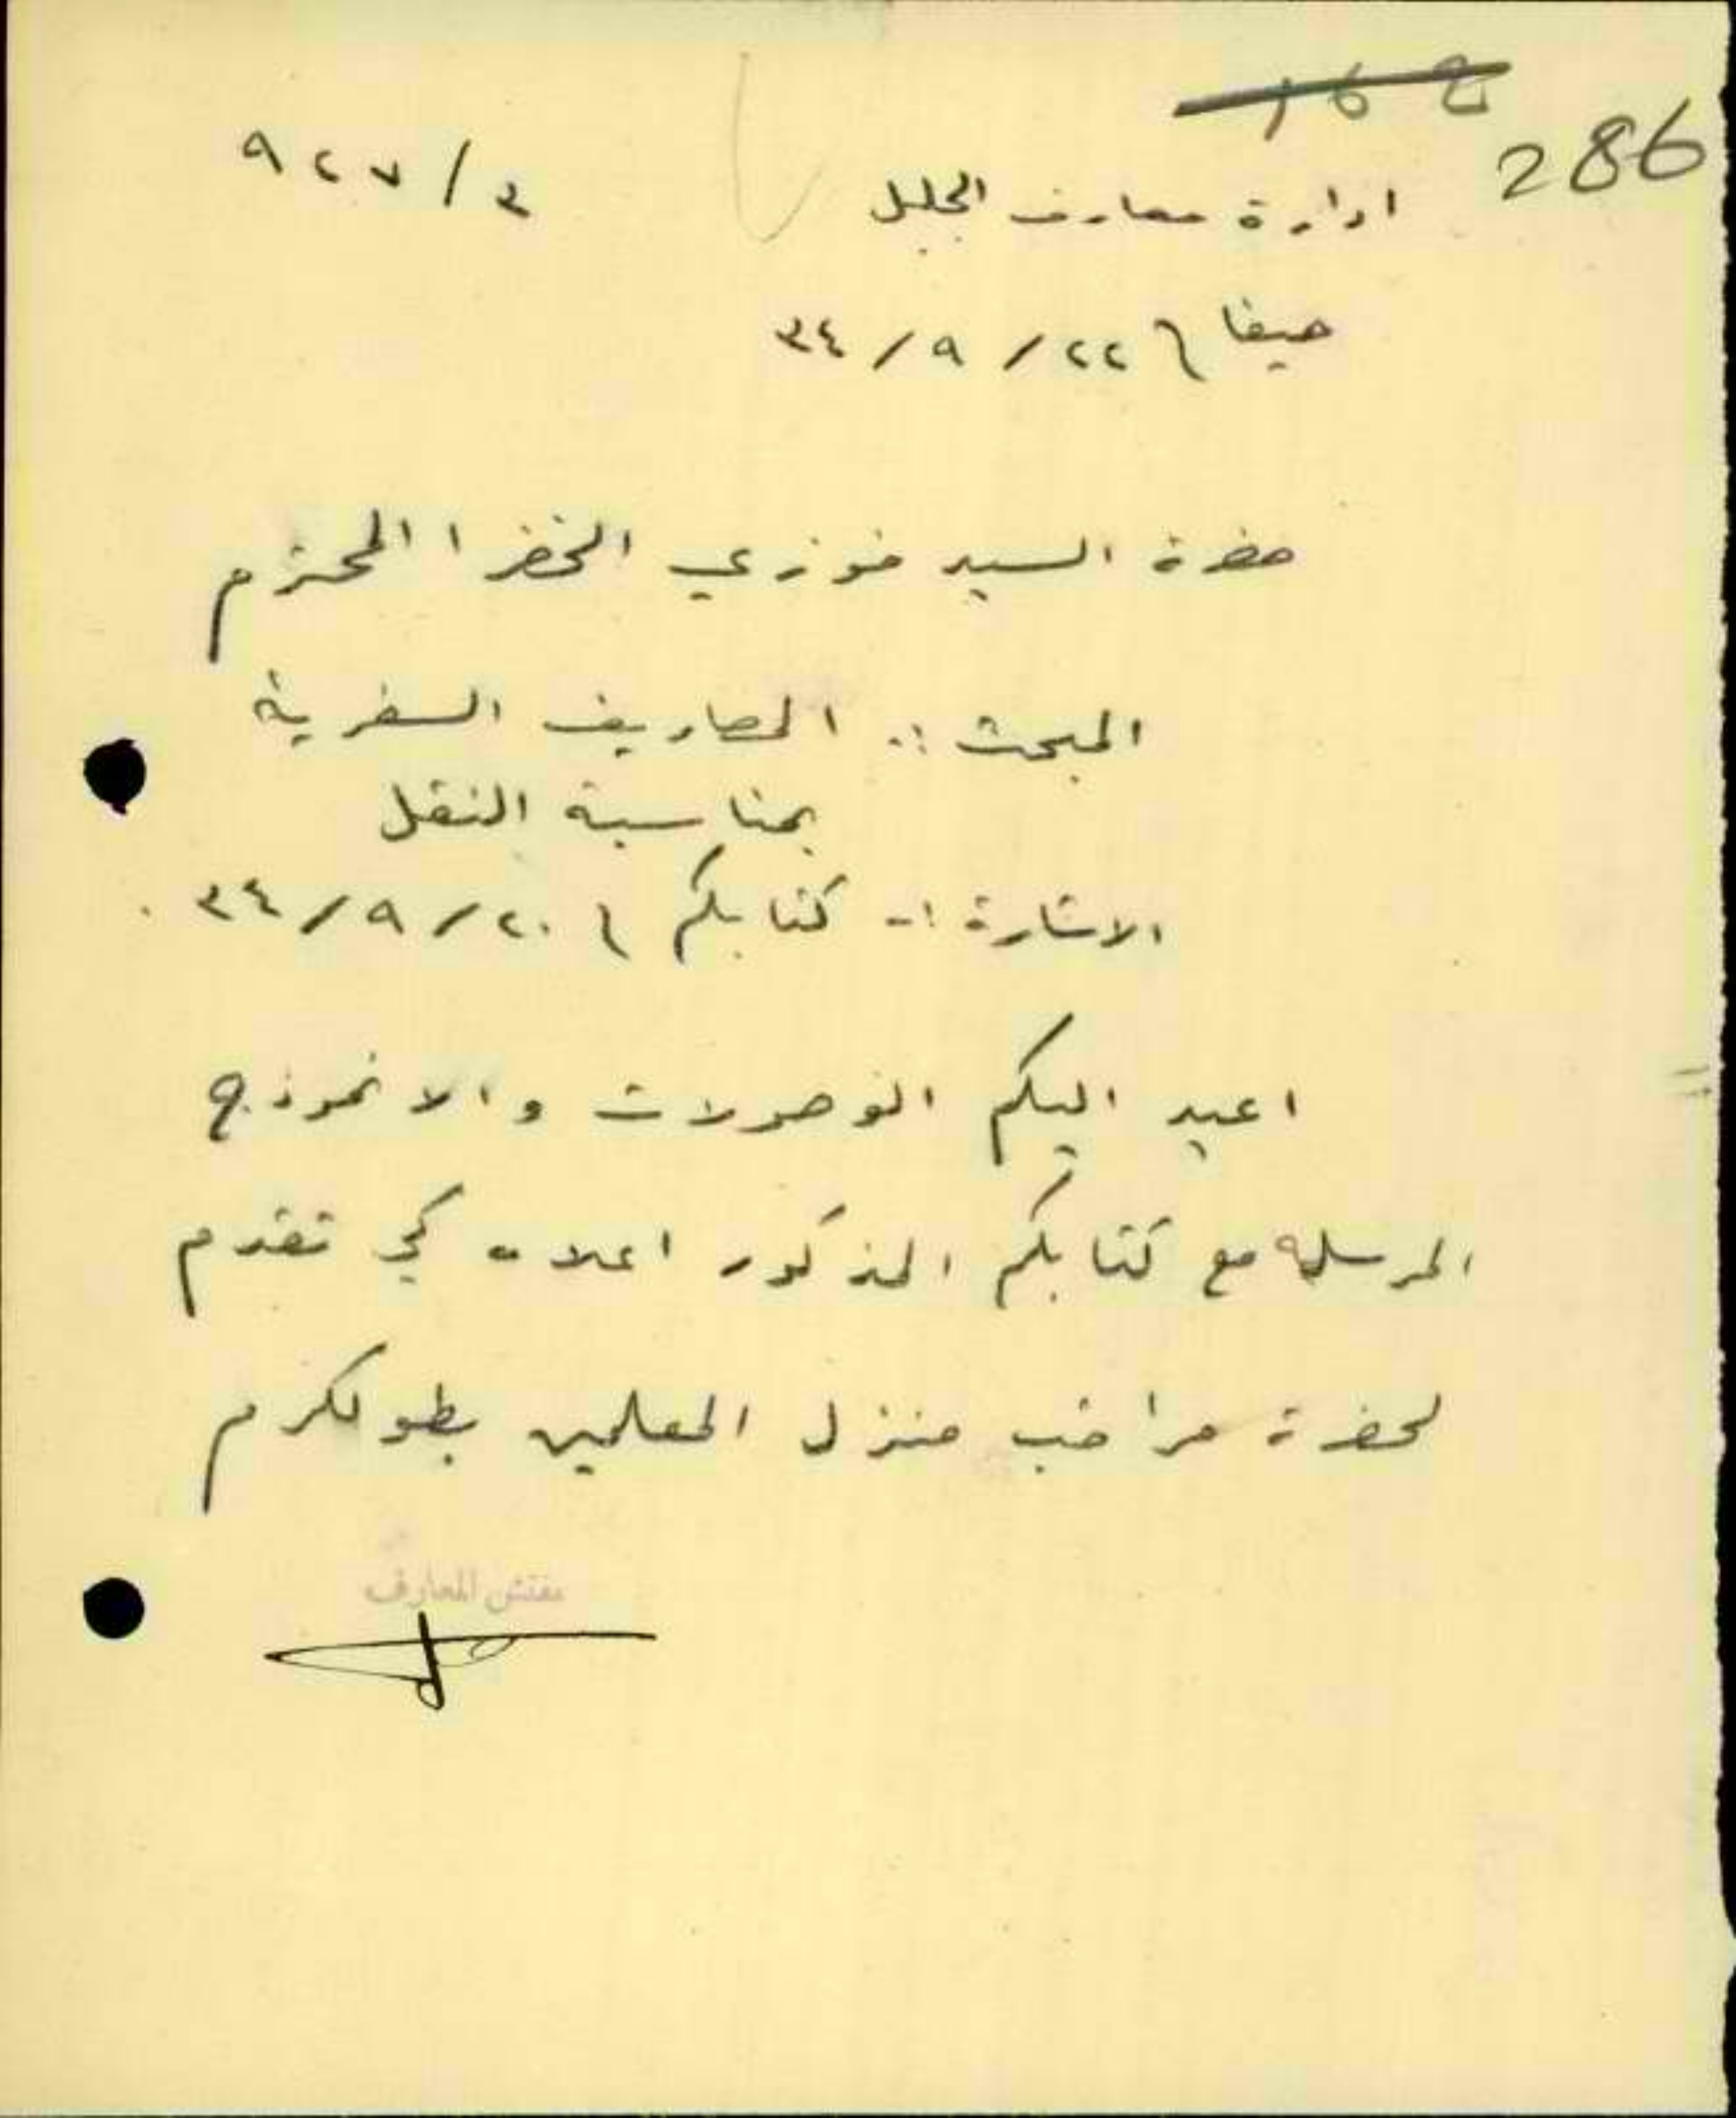 286
ادارة معارف الجليل
٩٢٧/٣
حيفا ٢٢/٩/٣٤
حضرة السيد فوزي الخضرا المحترم
المبحث :. المصاريف السفرية
بمناسبة النقل
الاشارة :- كتابكم ٢٠/٩/٣٤
اعيد اليكم الوصولات والانموذج
المرسلة مع كتابكم المذكور اعلاه كي تقدم
لحضرة مراقب منزل المعلمين بطولكرم
مفتش المعارف